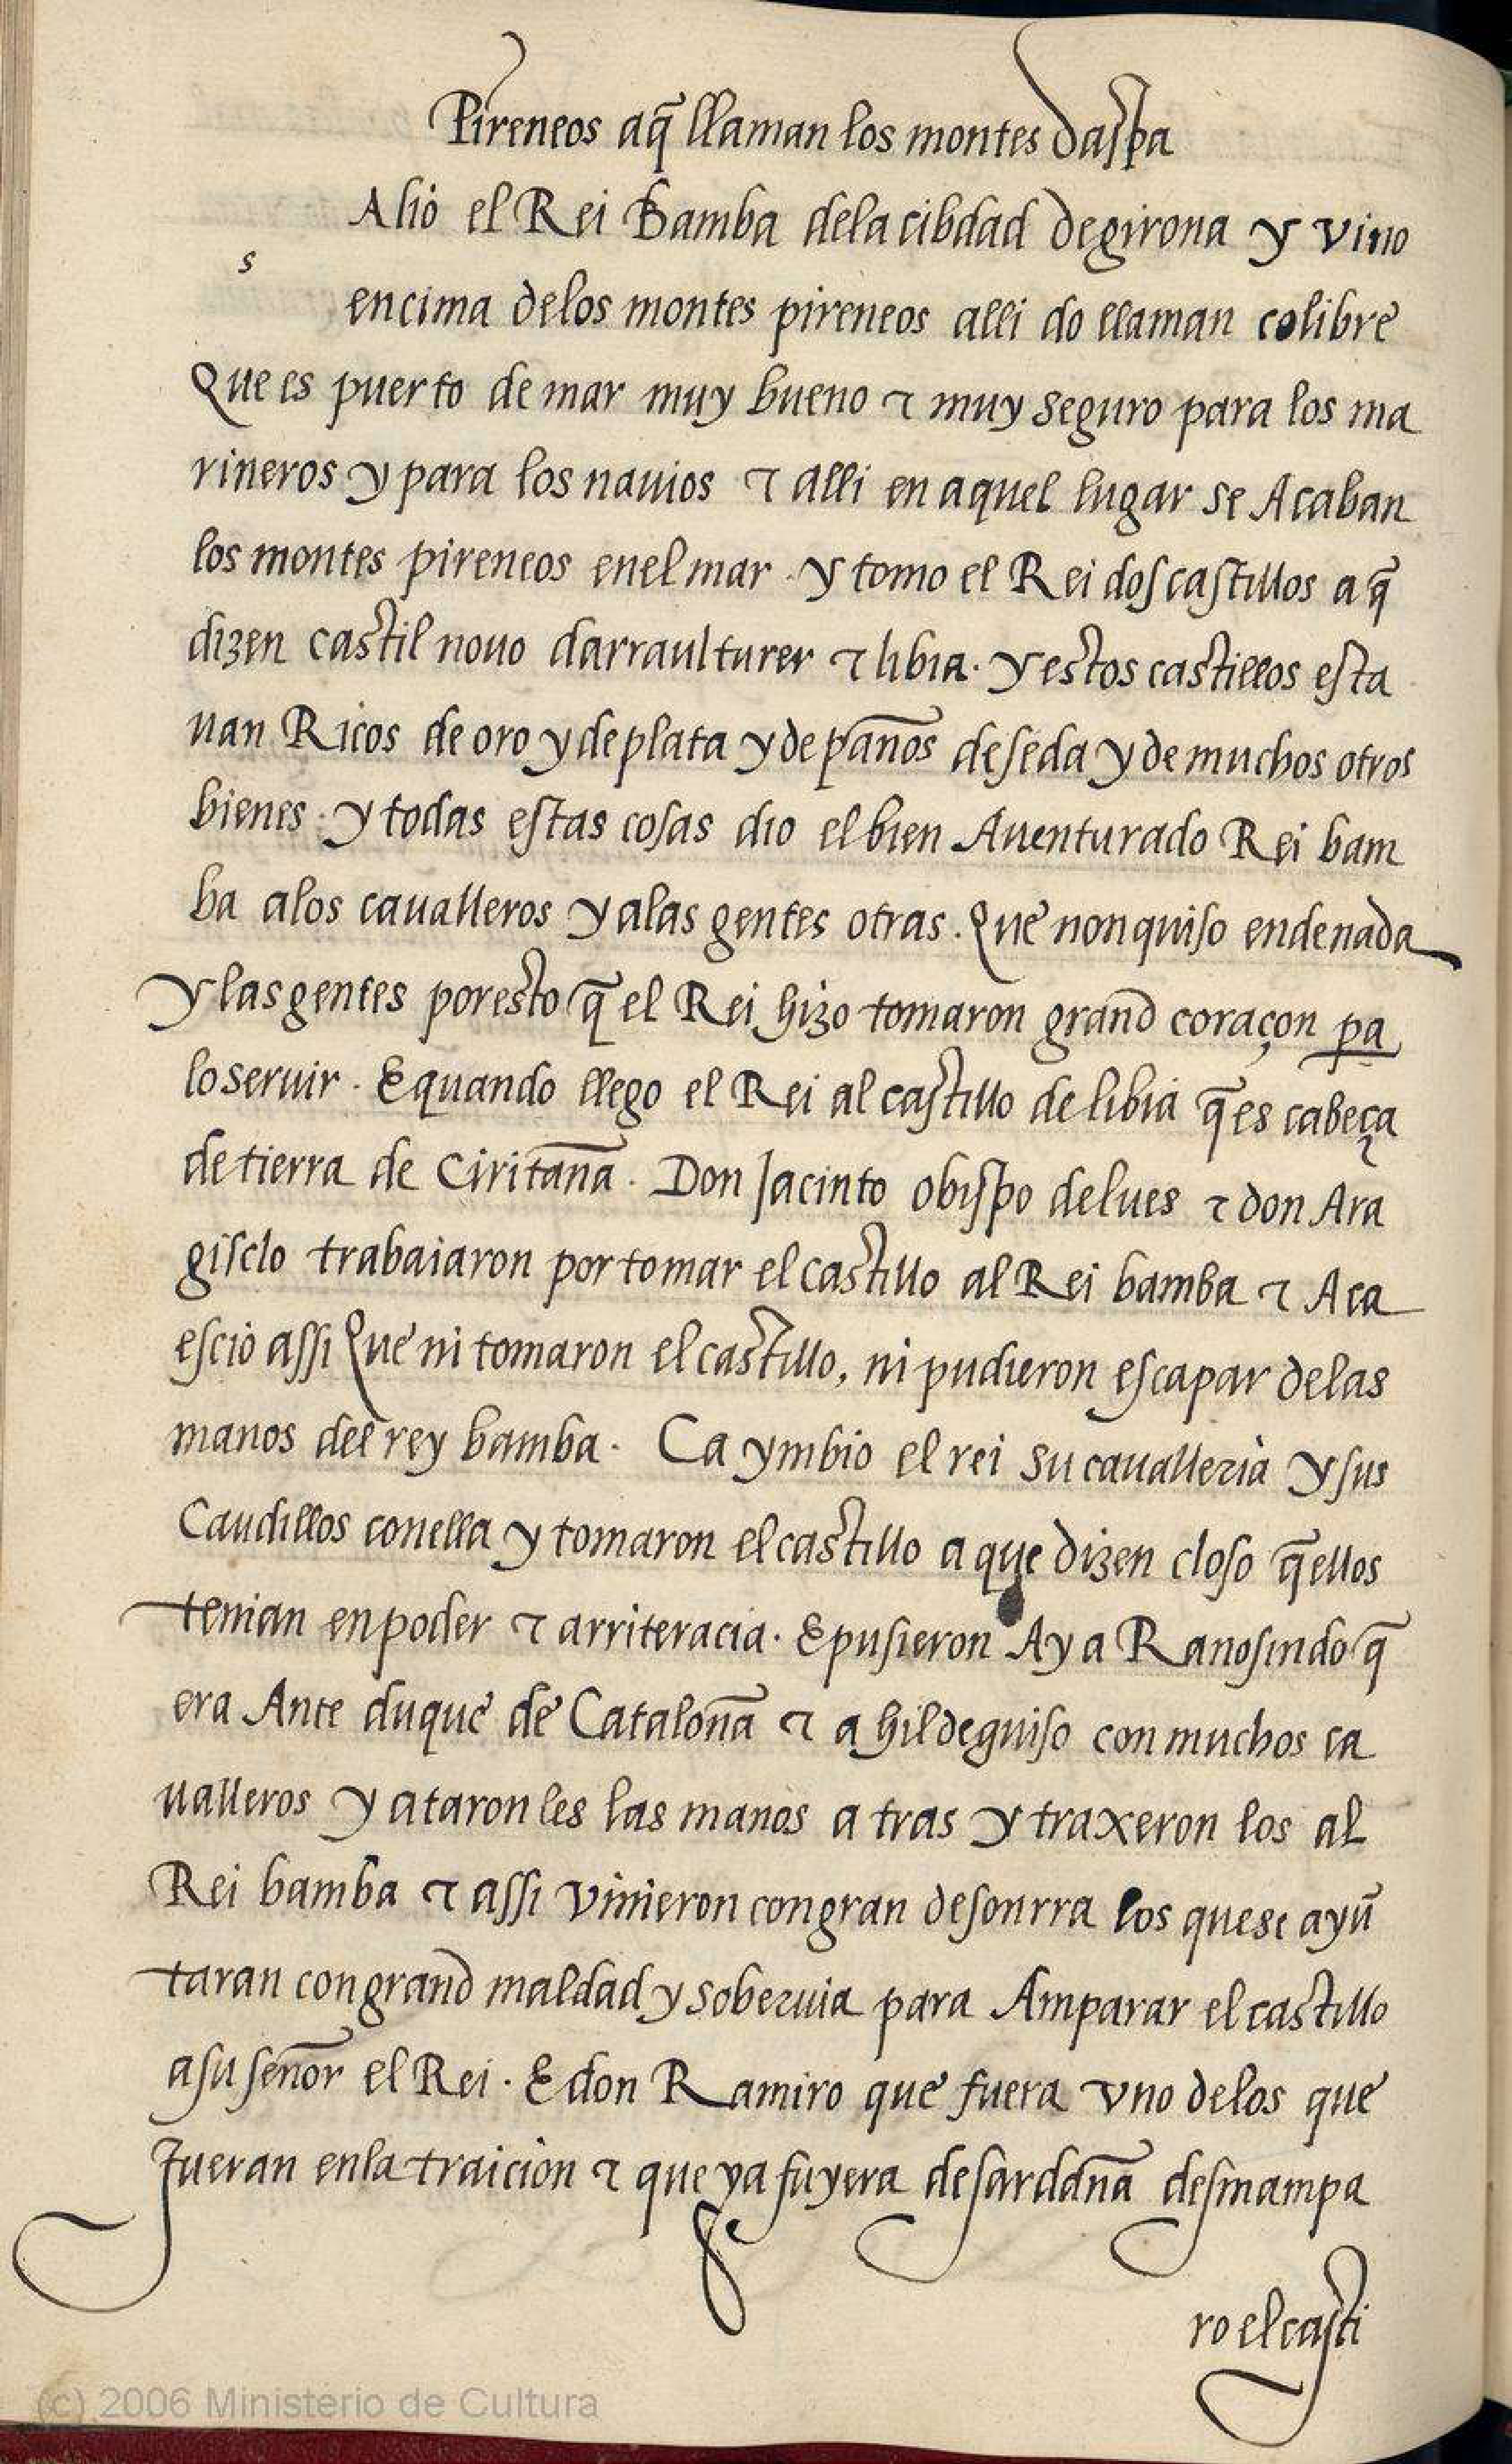 Pireneos aq̃ llaman los montes daspa
Alio el Rei Bamba dela cibdad de girona y vino
s
encima delos montes pireneos alli do llaman colibre
Que es puerto de mar muy bueno ⁊ muy seguro para los ma
rineros y para los nauios ⁊ alli en aquel lugar se Acaban
los montes pireneos enel mar · y tomo el Rei dos castillos a q̃
dizen castil nouo darraulturer ⁊ libia · y estos castillos esta
uan Ricos de oro y de plata y de paños de seda y de muchos otros
bienes · y todas estas cosas dio el bien Auenturado Rei bam
ba alos caualleros y alas gentes otras · Que non quiso ende nada
y las gentes por esto q̃ el Rei hizo tomaron grand coraçon pa
lo seruir · E quando llego el Rei al castillo de libia q̃ es cabeça
de tierra de Ciritaña · Don Jacinto obispo delues ⁊ don Ara
gisclo trabaiaron por tomar el castillo al Rei bamba ⁊ Aca
escio assi Que ni tomaron el castillo, ni pudieron escapar delas
manos del rey bamba · Ca ymbio el rei su caualleria y sus
Caudillos con ella y tomaron el castillo a que dizen closo q̃ ellos
tenian en poder ⁊ arriteracia · E pusieron Ay a Ranosindo q̃
era Ante duque de Cataloña ⁊ a hildeguiso con muchos ca
ualleros y ataron les las manos a tras y traxeron los al
Rei bamba ⁊ assi vinieron con gran desonrra los que se ayũ
taran con grand maldad y soberuia para Amparar el castillo
a su señor el Rei · E don Ramiro que fuera vno delos que
fueran enla traicion ⁊ que ya fuyera de sardaña desmampa
ro el casti
(c) 2006 Ministerio de Cultura